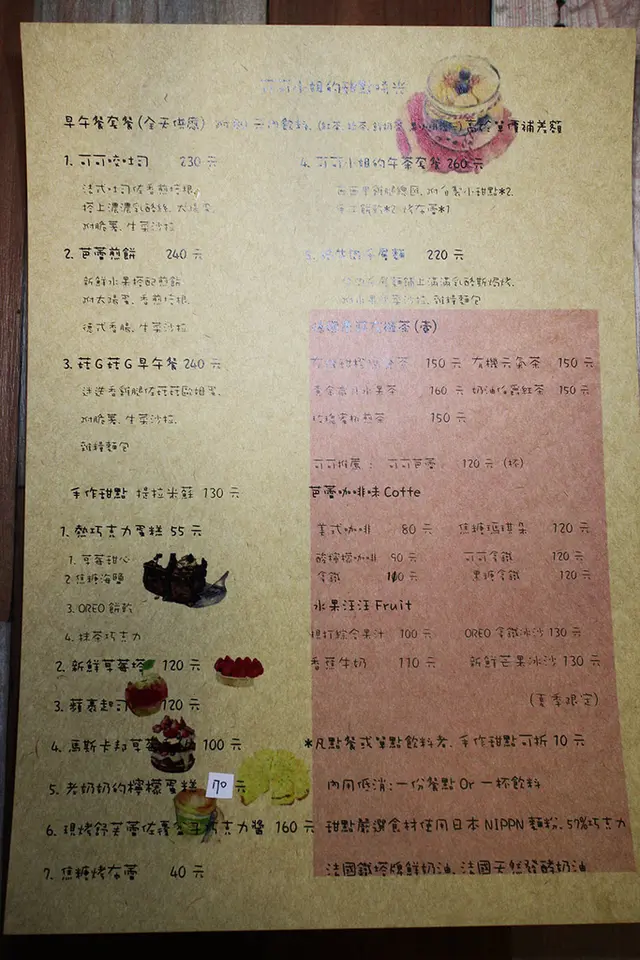 可可小姐的甜點時光
早午餐套餐(全天供應)
1. 可可咬吐司 230 元
法式吐司佐香煎培根,
搭上濃濃乳酪絲. 太陽蛋.
附脆薯. 生菜沙拉
2. 芭蕾煎餅 240 元
新鮮水果搭配煎餅
附太陽蛋. 香煎培根.
德式香腸. 生菜沙拉
3. 菇G菇G早午餐 240 元
迷迭香雞腿佐菇菇歐姆蛋.
附脆薯. 生菜沙拉.
雜糧麵包
手作甜點 提拉米蘇 130 元
1. 熱巧克力蛋糕 55 元
1. 草莓甜心
2. 焦糖海鹽
3. OREO 餅乾
4. 抹茶巧克力
2. 新鮮草莓塔 120 元
3. 蘋裹起司 120 元
4. 馬斯卡邦草莓 100 元
5. 老奶奶的檸檬蛋糕 170 元
6. 現烤舒芙蕾佐 巧克力醬 160 元
7. 焦糖烤布蕾 40 元
4. 可可小姐的午茶套餐 260 元
附自製小甜點*2.
手工餅乾*2. 烤布蕾*1
220 元
麵鋪上滿滿乳酪焗烤.
附水果生菜沙拉. 雜糧麵包
茶(壺)
150 元 有機元氣茶 150 元
水果茶 160 元 奶油伯爵紅茶 150 元
煎茶 150 元
可可推薦: 可可芭蕾: 120 元 (杯)
芭蕾咖啡味 Coffe
美式咖啡 80 元 焦糖瑪琪朵 120 元
酸檸檬咖啡 90 元 可可拿鐵 120 元
拿鐵 110 元 黑糖拿鐵 120 元
水果汪汪 Fruit
現打綜合果汁 100 元 OREO 拿鐵冰沙 130 元
香蕉牛奶 110 元 新鮮芒果冰沙 130 元
(夏季限定)
*凡點餐或單點飲料者. 手作甜點可折 10 元
內用低消:一份餐點 Or 一杯飲料
甜點嚴選食材使用日本 NIPPN 麵粉. 57%巧克力
法國鐵塔牌鮮奶油. 法國天然發酵奶油